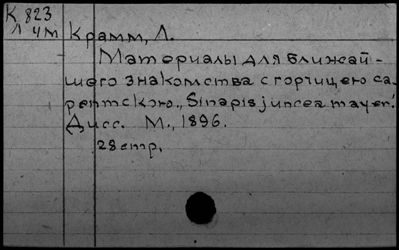 К 823
Л 4м
Крамм, Л.
Материалы для ближай-
шего знакомства с горчицею са-
рептскою., Sinapis juncea mayer.
Дисс. М., 1896.
28 стр.